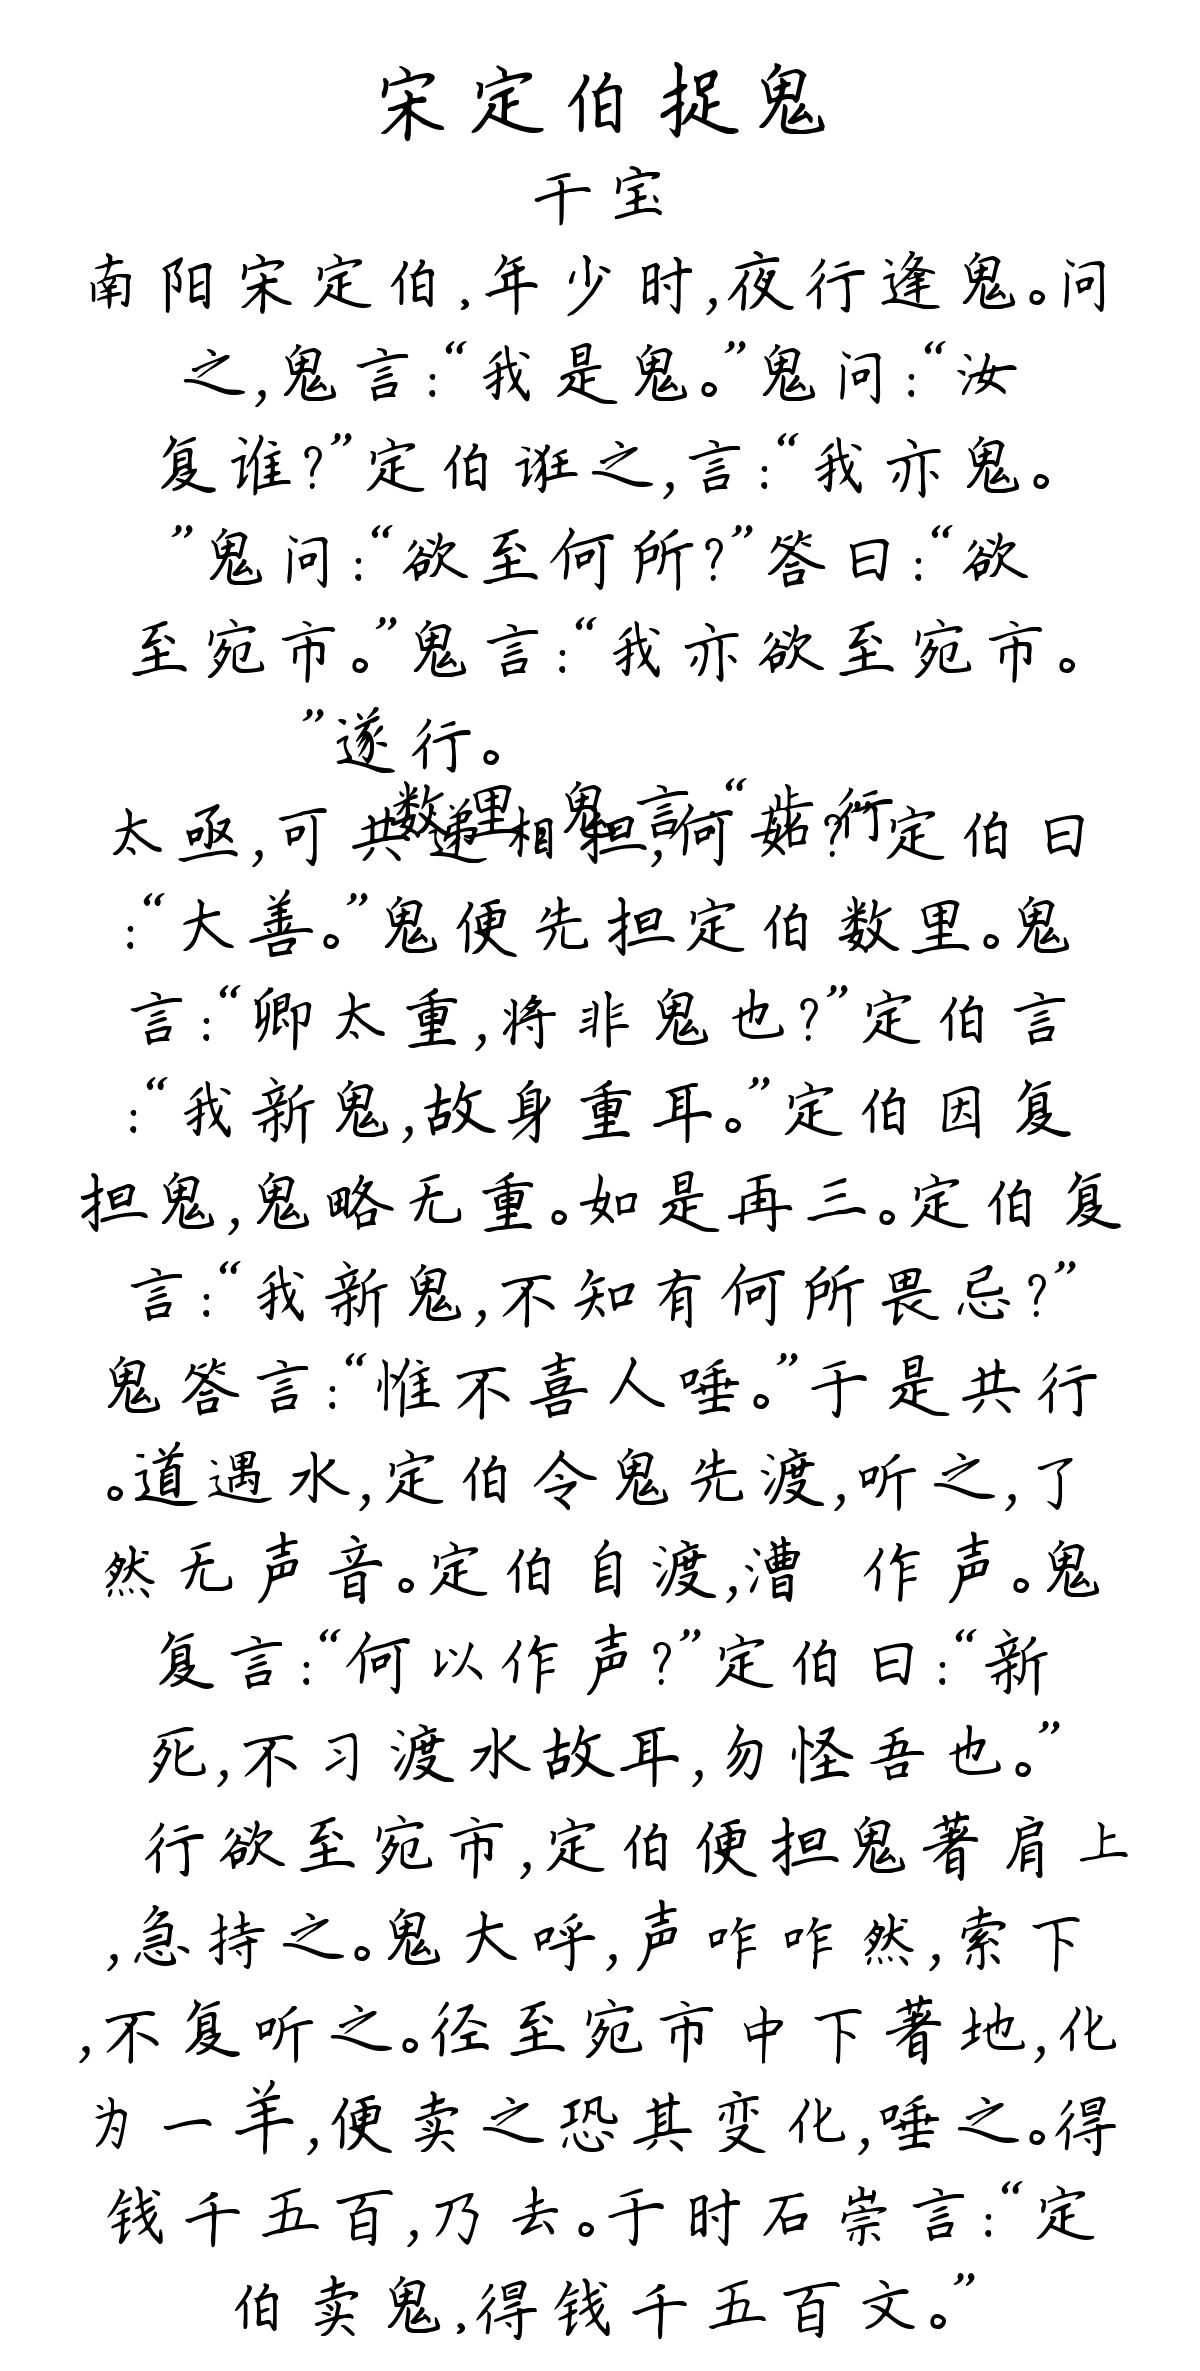 宋定伯捉鬼
干宝
南阳宋定伯,年少时,夜行逢鬼。问
之,鬼言:“我是鬼。”鬼问:“汝
复谁?”定伯诳之,言:“我亦鬼。
”鬼问:“欲至何所?”答曰:“欲
至宛市。”鬼言:“我亦欲至宛市。
”遂行。
数里,鬼言:“步行
太亟,可共递相担,何如?”定伯曰
:“大善。”鬼便先担定伯数里。鬼
言:“卿太重,将非鬼也?”定伯言
:“我新鬼,故身重耳。”定伯因复
担鬼,鬼略无重。如是再三。定伯复
言:“我新鬼,不知有何所畏忌?”
鬼答言:“惟不喜人唾。”于是共行
。道遇水,定伯令鬼先渡,听之,了
然无声音。定伯自渡,漕 作声。鬼
复言:“何以作声?”定伯曰:“新
死,不习渡水故耳,勿怪吾也。”
行欲至宛市,定伯便担鬼著肩上
,急持之。鬼大呼,声咋咋然,索下
,不复听之。径至宛市中下著地,化
为一羊,便卖之恐其变化,唾之。得
钱千五百,乃去。于时石崇言:“定
伯卖鬼,得钱千五百文。”